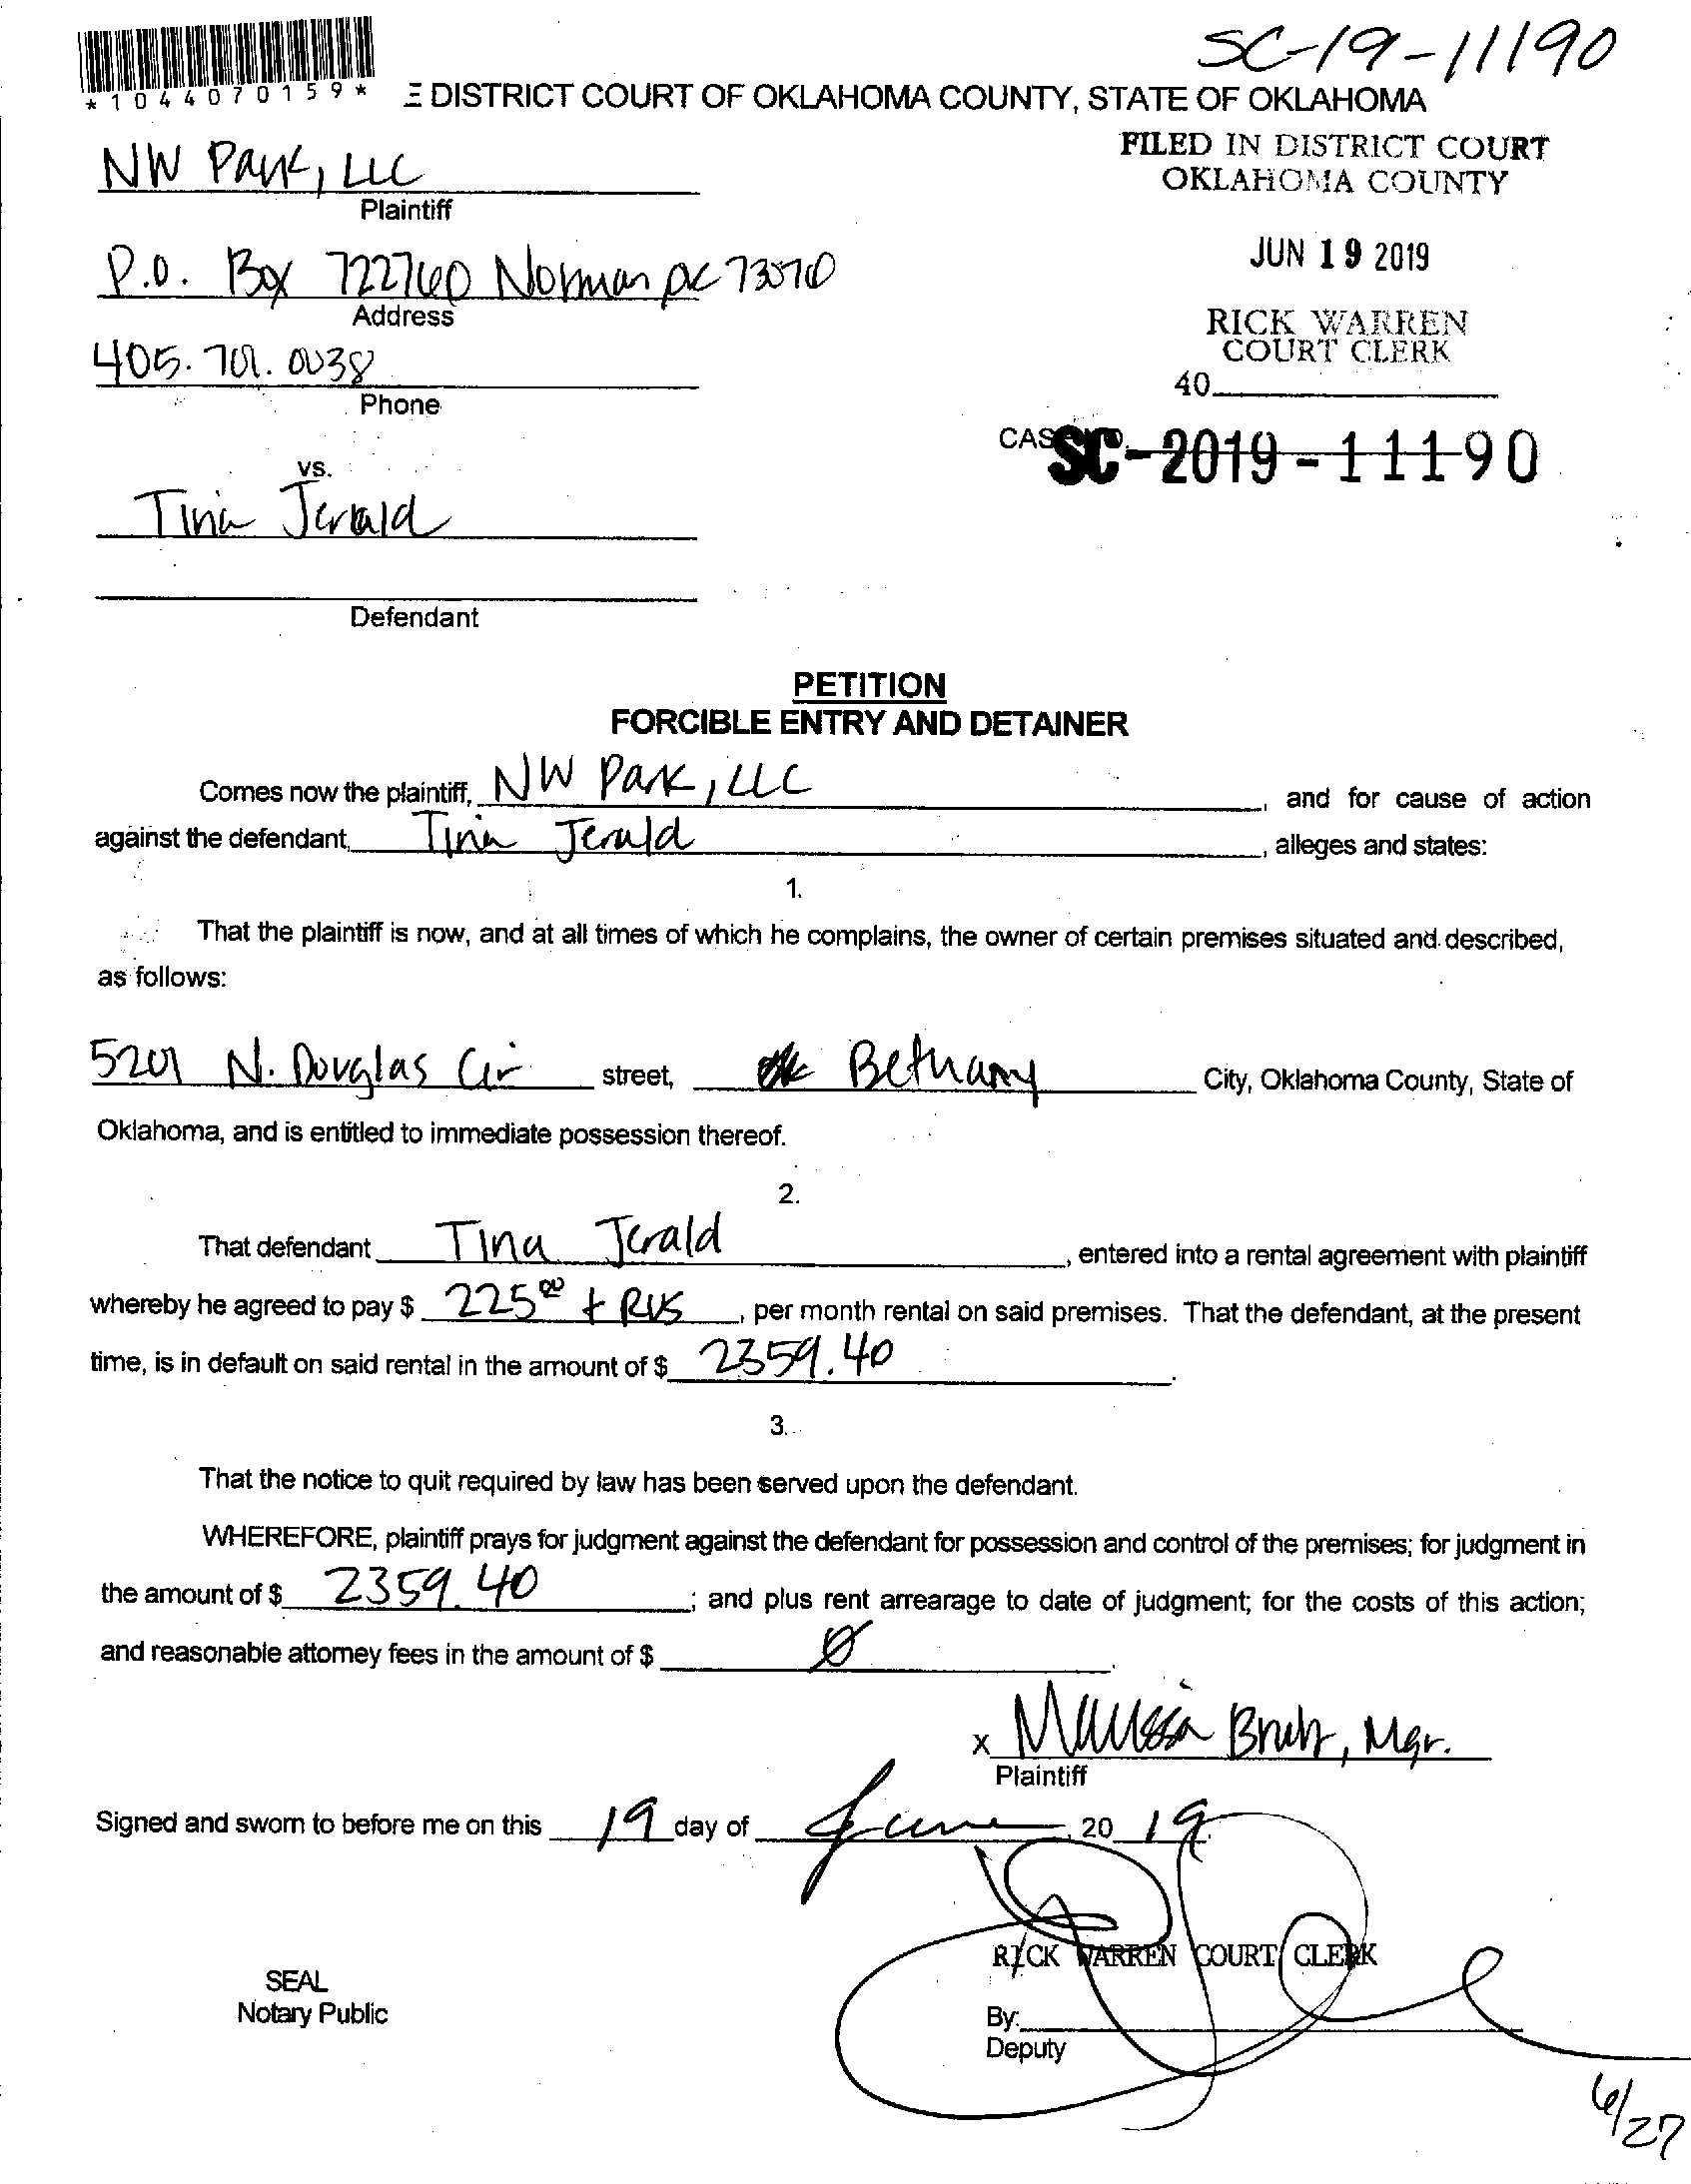 SC-19-11190
*1044070159*
E DISTRICT COURT OF OKLAHOMA COUNTY, STATE OF OKLAHOMA
NW Park, LLC
Plaintiff
FILED IN DISTRICT COURT
OKLAHOMA COUNTY
P.O. Box 722760 Norman OK 73070
Address
JUN 19 2019
405.701.0038
Phone
RICK WARREN
COURT CLERK
40
CAS SC-2019-11190
vs.
Tina Jerald
Defendant
PETITION
FORCIBLE ENTRY AND DETAINER
Comes now the plaintiff, NW Park, LLC, and for cause of action
against the defendant, Tina Jerald, alleges and states:
1.
That the plaintiff is now, and at all times of which he complains, the owner of certain premises situated and described,
as follows:
5201 N. Douglas Cir street, Bethany City, Oklahoma County, State of
Oklahoma, and is entitled to immediate possession thereof.
2.
That defendant Tina Jerald, entered into a rental agreement with plaintiff
whereby he agreed to pay $ 225.00 +, per month rental on said premises. That the defendant, at the present
time, is in default on said rental in the amount of $ 2359.40.
3.
That the notice to quit required by law has been served upon the defendant.
WHEREFORE, plaintiff prays for judgment against the defendant for possession and control of the premises; for judgment in
the amount of $ 2359.40; and plus rent arrearage to date of judgment; for the costs of this action;
and reasonable attorney fees in the amount of $ Ø.
x Mgr.
Plaintiff
Signed and sworn to before me on this 19 day of June, 2019.
RICK WARREN COURT CLERK
SEAL
Notary Public
By:
Deputy
6/27